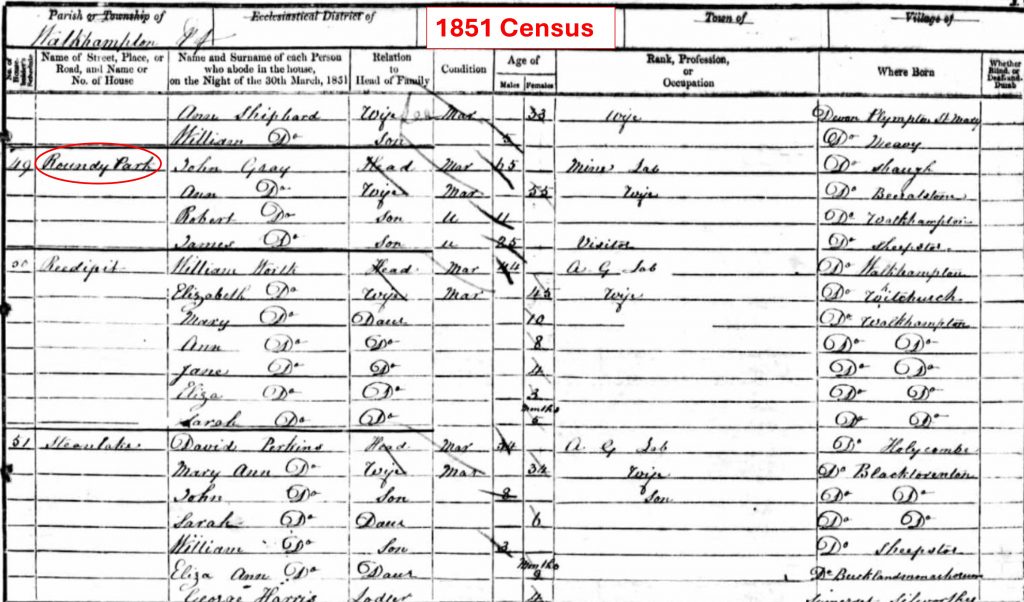 Parish or Township of Ecclesiastical District of 1851 Census Town of Village of
Walkhampton
Name of Street, Place, or Road, and Name or No. of House Name and Surname of each Person who abode in the house, on the Night of the 30th March, 1851 Relation to Head of Family Condition Age of Males Females Rank, Profession, or Occupation Where Born Whether Blind, or Deaf-and-Dumb
Ann Shiphard Wife Mar 33 Wife Devon Plympton St Mary
William Do Son Do Meavy
49 Roundy Park John Gray Head Mar 65 Mine Lab Do Shaugh
Ann Do Wife Mar 55 Wife Do Beeralston
Robert Do Son u 11 Do Walkhampton
James Do Son u 25 Visitor Do Sheepstor
50 Reedipit William Worth Head Mar 44 A G Lab Do Walkhampton
Elizabeth Do Wife Mar 45 Wife Do Whitchurch
Mary Do Daur 10 Do Walkhampton
Ann Do Do 8 Do Do
Jane Do Do 4 Do Do
Eliza Do Do 3 Do Do
Sarah Do Do Months 5 Do Do
51 Stenlake David Perkins Head Mar 34 A G Lab Do Holycombe
Mary Ann Do Wife Mar 34 Wife Do Blacktorenton
John Do Son 8 Son Do Do
Sarah Do Daur 6 Do Do
William Do Son 3 Do Sheepstor
Eliza Ann Do Daur Months 9 Do Bucklandmonachorum
George Harris Somerset